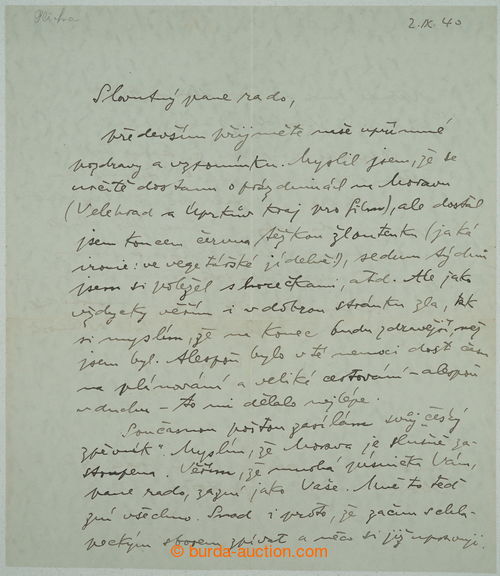 Plicka
2. IX. 40
Slovutný pane rado,
především přijměte mé upřímné
pozdravy a vzpomínku. Myslil jsem, že se
určitě dostanu o prázdninách na Moravu
(Velehrad a Úprkův kraj pro film), ale dostal
jsem koncem června těžkou žloutenku (jaká
ironie: ve vegetářské jídelně!), sedum týdnů
jsem si poležel s horečkami, atd. Ale jako
vždycky věřím i v dobrou stránku zla, tak
si myslím, že na konec budu zdravější, než
jsem byl. Alespoň bylo v té nemoci dost času
na plánování a veliké cestování – alespoň
v duchu – to mi dělalo nejlépe.
Současnou poštou zasílám svůj „český
zpěvník“. Myslím, že Morava je slušně za-
stoupena. Věřím, že mnohá písnička Vám,
pane rado, zazní jako Vaše. Mně to teď
zní všechno. Snad i proto, že začínám s
sborem zpívat a něco si již
© burda-auction.com